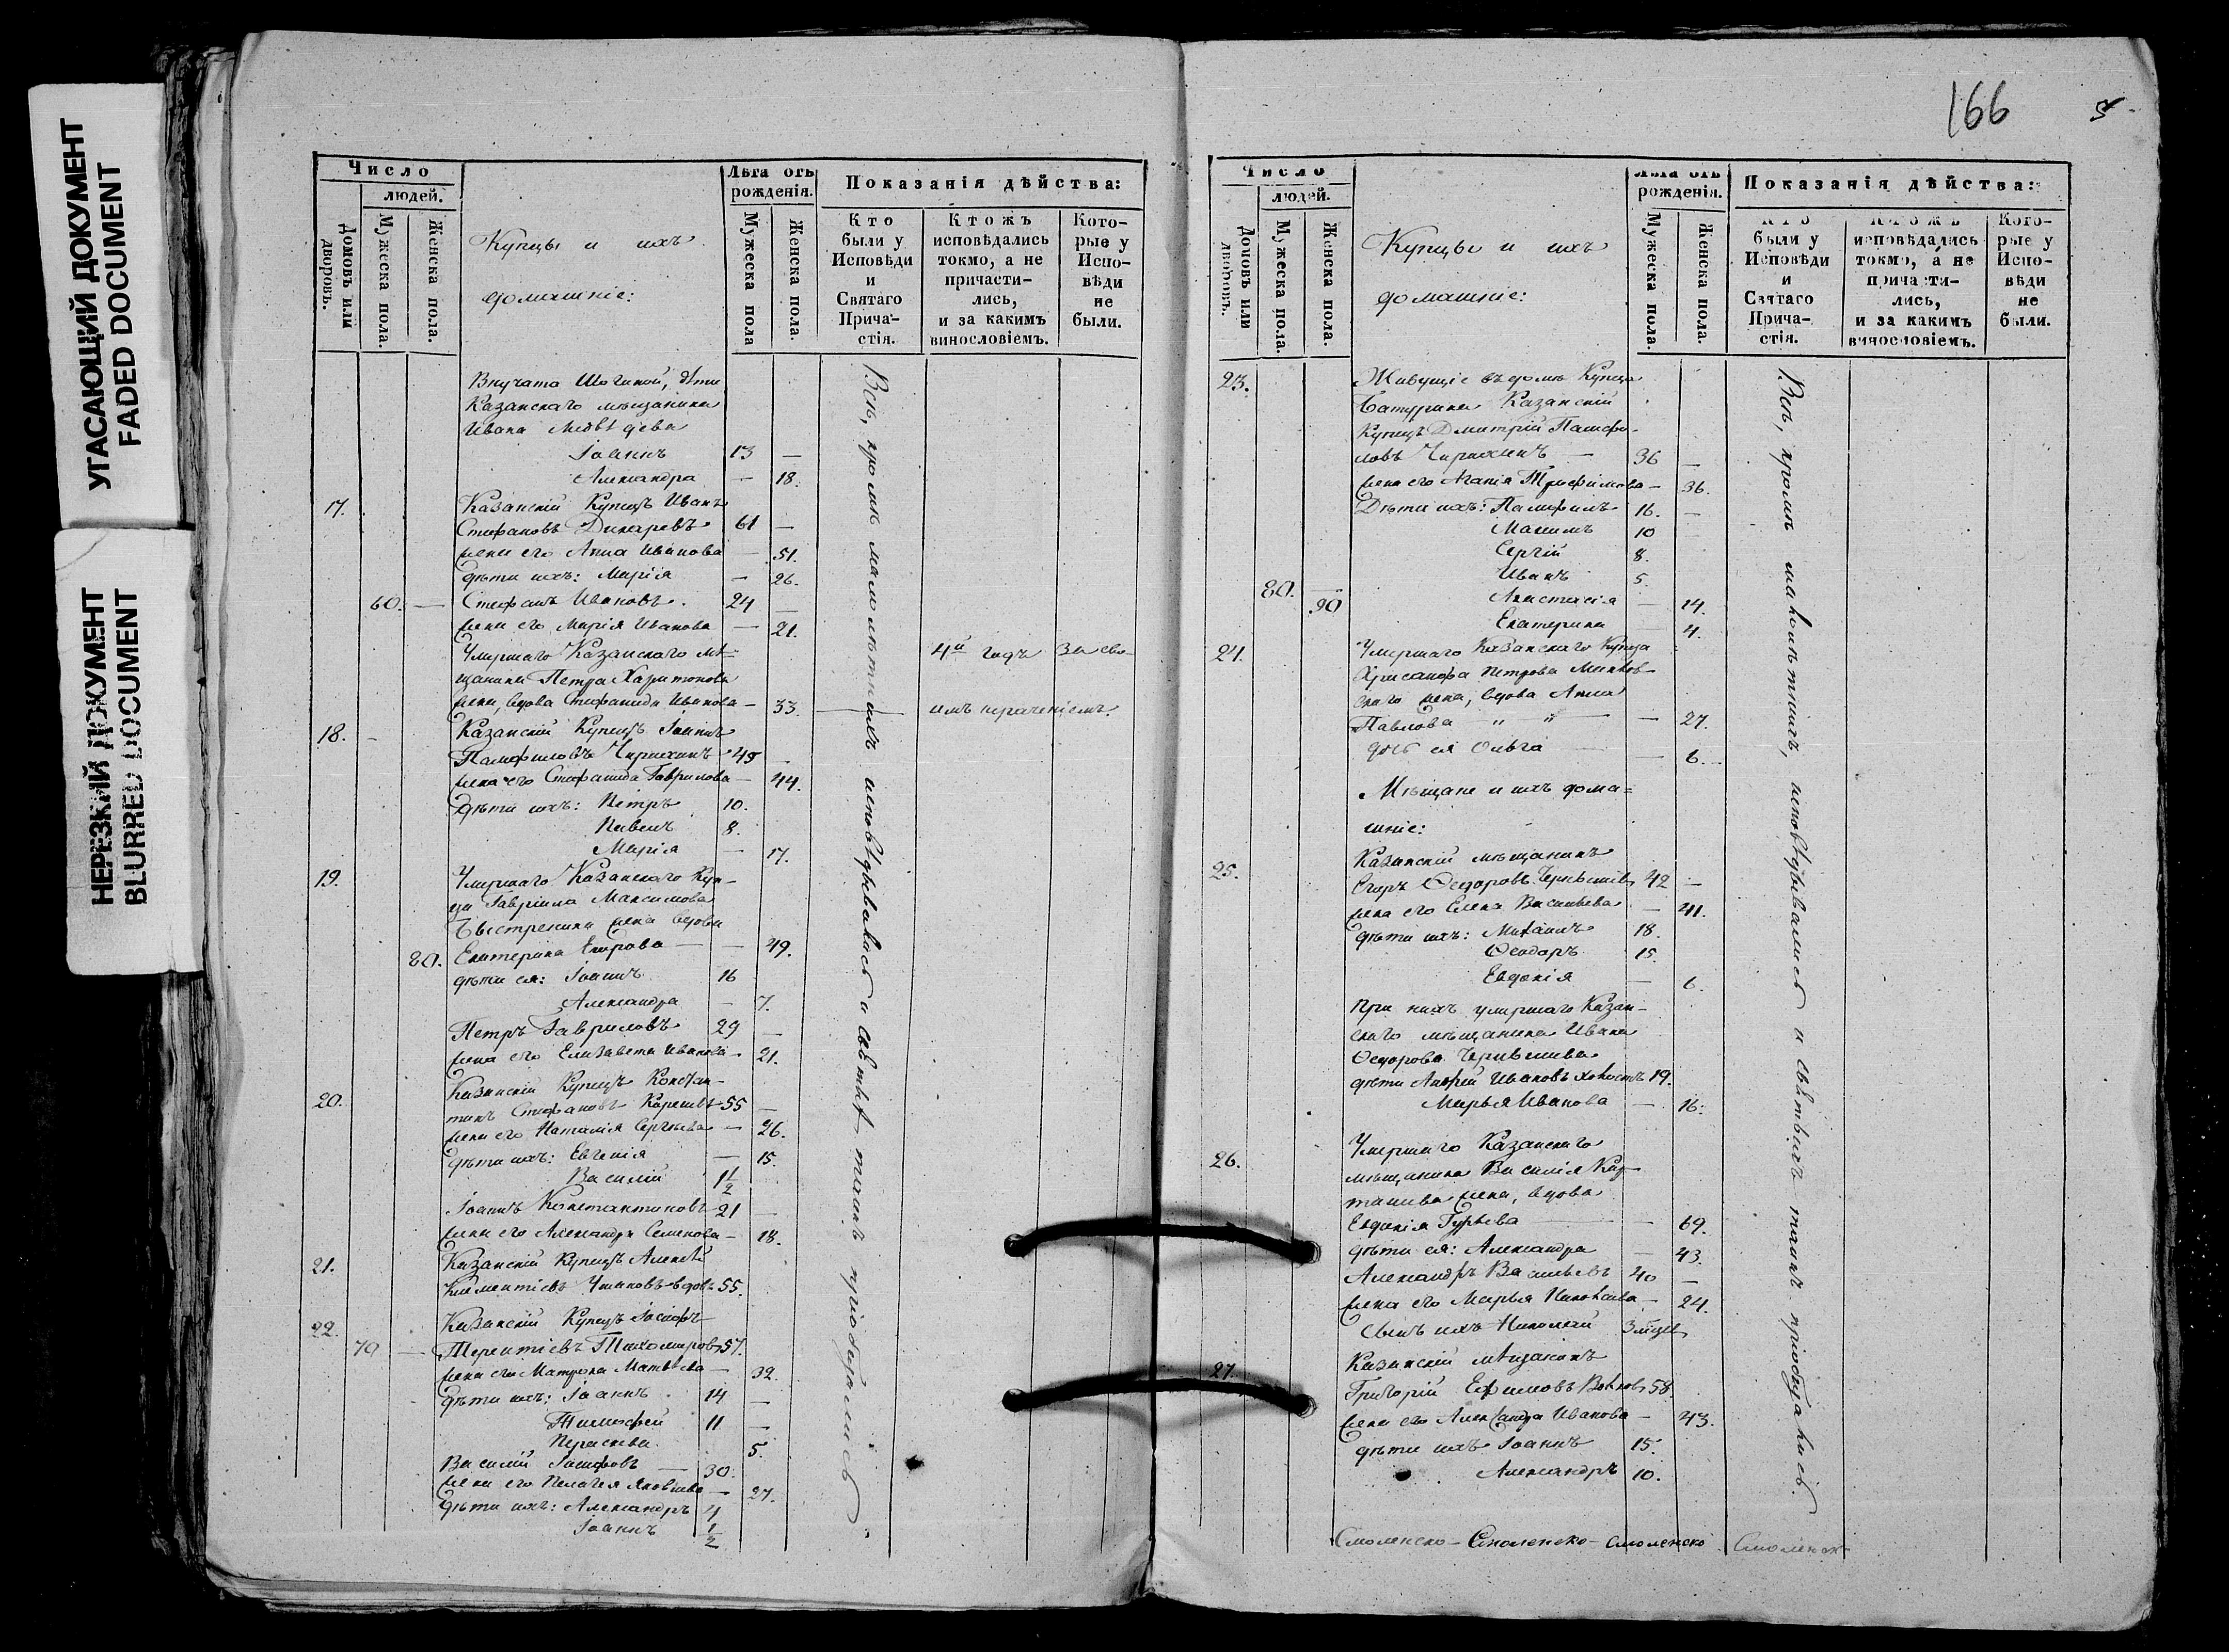 УГАСАЮЩИЙ ДОКУМЕНТ
FADED DOCUMENT
НЕРЕЗКИЙ ДОКУМЕНТ
BLURRED DOCUMENT
Число
людей.
Домовъ или дворовъ.
Мужеска пола.
Женска пола.
Купцы и ихъ
домашніе:
Лѣта отъ
рожденія.
Мужеска пола
Женска пола.
Показанія дѣйства:
Кто
были у
Исповѣди
и
Святаго
Прича-
стія.
Ктожъ
исповѣдались
токмо, а не
причасти-
лись,
и за какимъ
винословіемъ.
Кото-
рые у
Испо-
вѣди
не
были.
Внучата Шогиной, дѣти
Казанскаго мѣщанина
Ивана Медвѣдева
Іоаннъ 13 —
Александра — 18.
17. Казанскій Купецъ Иванъ
Стефановъ Дикаревъ 61 —
жена его Анна Иванова — 51.
дѣти ихъ: Марія — 26.
60. — Стефанъ Ивановъ. 24 —
жена его Марія Иванова — 21.
Умершаго Казанскаго мѣ= 4й годъ за сво-
щанина Петра Харитонова
жена, вдова Стефанида Иванова — 33. имъ
18. Казанскій Купецъ Іоаннъ
Памфиловъ Чирихинъ 45 —
жена его Стефанида Гаврилова — 44.
дѣти ихъ: Петръ 10.
Павелъ 8.
Марія — 17.
19. Умершаго Казанскаго Куп-
ца Гавріила Максимова
жена вдова
80. Екатерина — — 49.
дѣти ея: Іоаннъ 16
Александра — 7.
Петръ Гавриловъ 29 —
жена его Елизавета Иванова — 21.
20. Казанскій Купецъ Констан-
тинъ Стефановъ 55 —
жена его Наталія Сергѣева — 26.
дѣти ихъ: Евгенія — 15.
Василій 1 1/2
Іоаннъ Константиновъ 21 —
жена его Александра Семенова — 18.
21. Казанскій Купецъ Алексѣй
Климентіевъ Ушаковъ вдовъ 55.
22. Казанскій Купецъ Іосифъ
79 — Терентіевъ Тихомировъ 57.
жена его Матрона Матвѣева — 32.
дѣти ихъ: Іоаннъ 14 —
Тимофей 11 —
Параскева 5.
Василій Іосифовъ — 30.
жена его Пелагея Яковлева — 27.
дѣти ихъ: Александръ 4
Іоаннъ 1/2
Всѣ, кромѣ малолѣтнихъ исповѣдывались и святыхъ таинъ пріобщались
166
Число
людей.
Домовъ или дворовъ.
Мужеска пола.
Женска пола.
Купцы и ихъ
домашніе:
Лѣта отъ
рожденія.
Мужеска пола.
Женска пола.
Показанія дѣйства:
Кто
были у
Исповѣди
и
Святаго
Прича-
стія.
Ктожъ
исповѣдались
токмо, а не
причасти-
лись,
и за какимъ
винословіемъ.
Кото-
рые у
Испо-
вѣди
не
были.
23. Живущіе въ домѣ Купца
Батурина Казанскій
Купецъ Дмитрій Памфи-
ловъ Чирихинъ — 36 —
жена его Агапія Трофимова — 36.
Дѣти ихъ: Памфилъ 16. —
Максимъ 10
Сергій 8.
Иванъ 5.
80. Анастасія — 14.
90 Екатерина — 4.
24. Умершаго Казанскаго Купца
Хрисанфа Петрова
жена, вдова Анна
Павлова " " — — 27.
дочь ея Ольга — 6.
Мѣщане и ихъ дома=
шніе:
25. Казанскій мѣщанинъ
Егоръ Ѳедоровъ Чернышевъ 42 —
жена его Елена Васильева — 41.
дѣти ихъ: Михаилъ 18.
Ѳеодоръ 15.
Евдокія — 6.
При нихъ умершаго Казан-
скаго мѣщанина Ивана
Ѳедорова Чернышева
дѣти Андрей Ивановъ холостъ 19.
Марья Иванова — 16.
26. Умершаго Казанскаго
мѣщанина Василія
жена, вдова
Евдокія Гурьева — — 69.
дѣти ея: Александра — 43.
Александръ Васильевъ 40 —
жена его Марья Николаева — 24.
сынъ ихъ Николай 3 мѣсяц
27. Казанскій мѣщанинъ
Григорій Ефимовъ Волковъ 58.
жена его Александра Иванова — 43.
дѣти ихъ Іоаннъ 15.
Александръ 10.
Всѣ, кромѣ малолѣтнихъ, исповѣдывались и святыхъ таинъ пріобщались.
Смоленско - Смоленско - Смоленско Смоленск